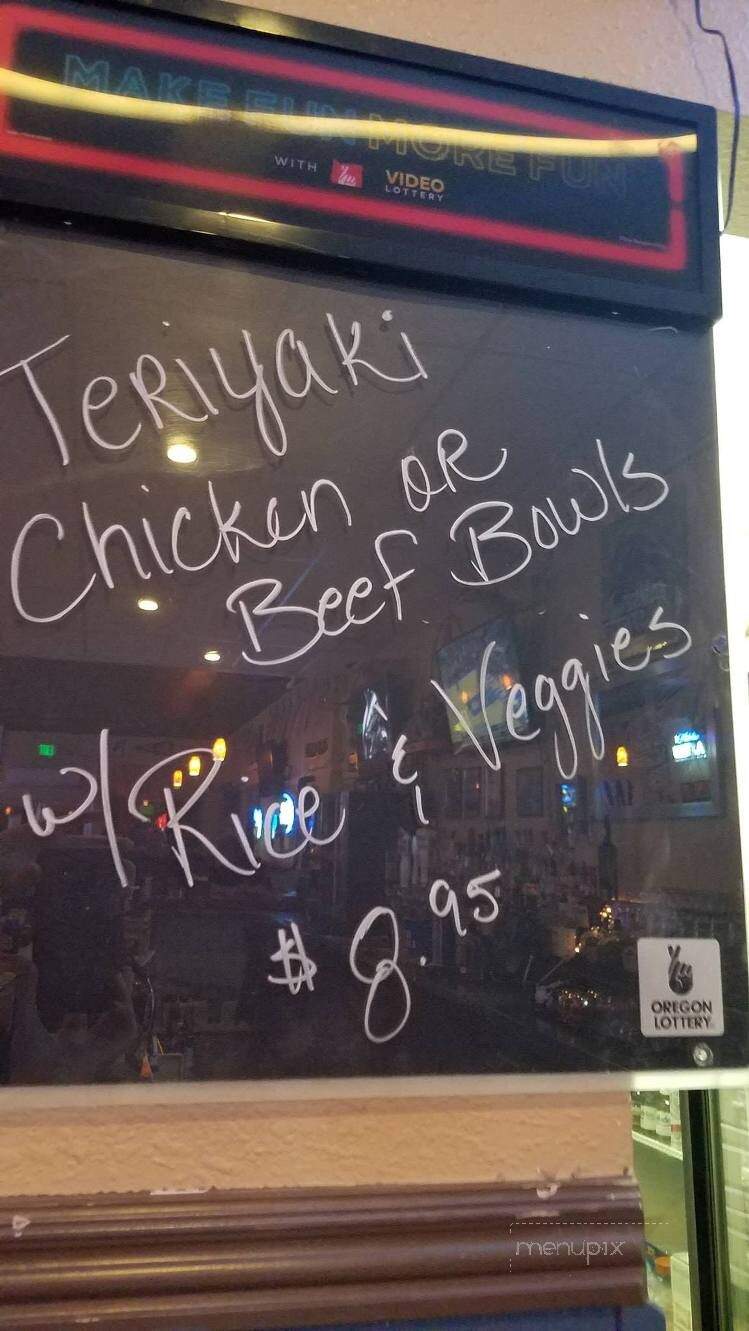 MAKE FUN MORE FUN
WITH VIDEO LOTTERY
Teriyaki
Chicken or
Beef Bowls
w/ Rice & Veggies
$8.95
OREGON
LOTTERY
menupix